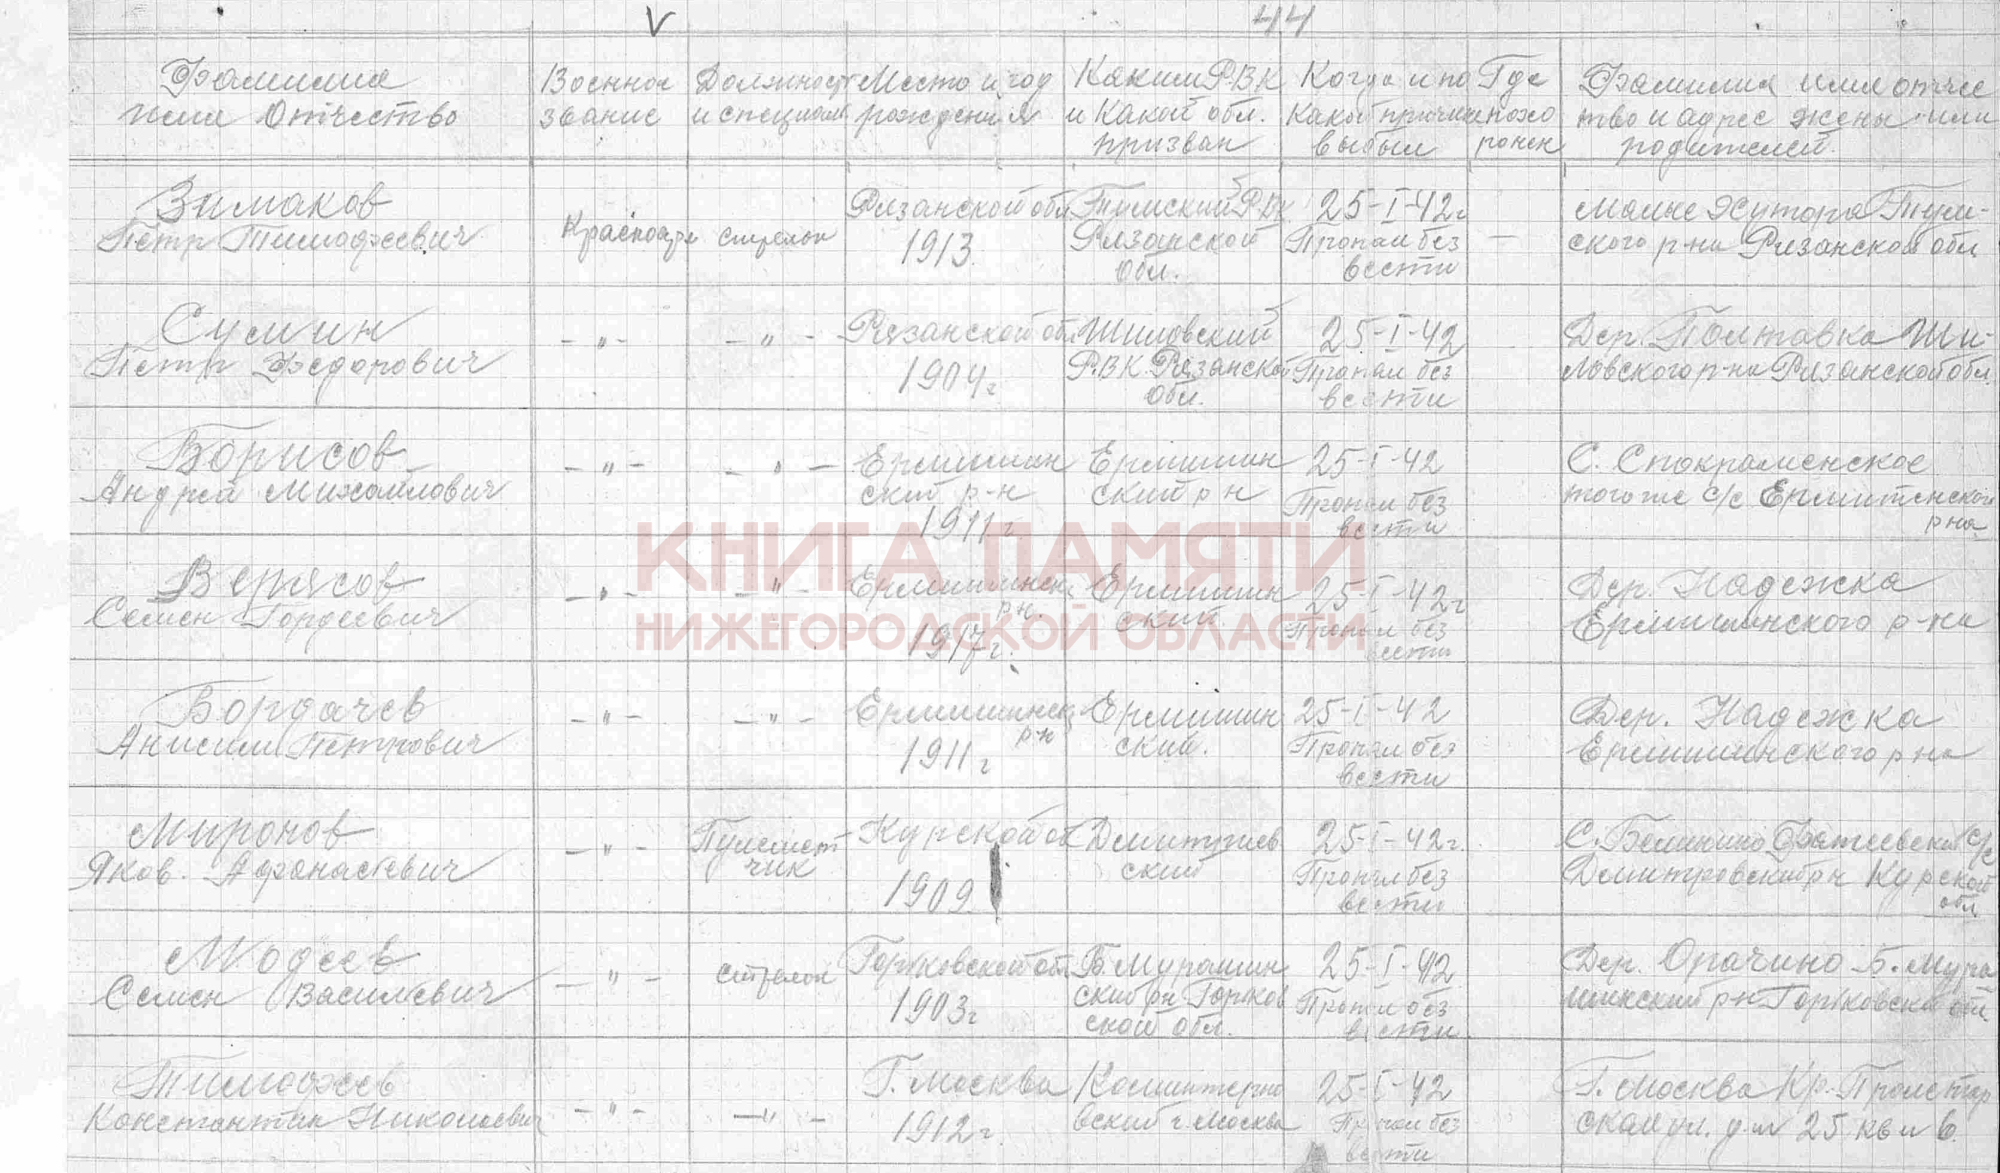 V
44
Фамилия
имя Отчество
Военное
звание
Должность
и специальн.
Место и год
рождения
Каким РВК
и Какой обл.
призван
Когда и по
Какой причине
выбыл
Где
похо
ронен
Фамилия имя отчес
тво и адрес жены или
родителей.
Зимаков
Петр Тимофеевич
Красноар
стрелок
Рязанской обл
1913
Тумский РВК
Рязанской
обл.
25-I-42г
Пропал без
вести
—
Малые Хутора Тум-
ского р-на Рязанской обл
Сумин
Петр Федорович
-"-
-"-
Рязанской обл
1904г
Шиловский
РВК Рязанской
обл.
25-I-42
Пропал без
вести
Дер. Полтавка Ши-
ловского р-на Рязанской обл.
Борисов
Андрей Михайлович
-"-
-"-
Ермишин
ский р-н
1911г
Ермишин
ский р н
25-I-42
Пропал без
вести
С.
того же с/с
р на
Верясов
Семен Гордеевич
-"-
-"-
Ермишинск
р н.
1917г.
Ермишин
ский
25-I-42г
Пропал без
вести
Дер. Надежка
Ермишинского р-на
Бордачев
Анисим Петрович
-"-
-"-
Ермишинск
р н
1911г
Ермишин
ский.
25-I-42
Пропал без
вести
Дер. Надежка
Ермишинского р на
Миронов
Яков. Афанасьевич
-"-
Пулемет
чик
Курской об
1909
Дмитриев
ский
25-I-42г.
Пропал без
вести
С. с/с
Дмитровский р н Курской
обл
Модеев
Семен Васильевич
-"-
стрелок
Горьковской обл
1903г
Б. Мурашин
ский рн Горьков
ской обл.
25-I-42
Пропал без
вести
Дер. Орачино Б. Мура
шинский р-н Горьковской обл.
Тимофеев
Константин Николаевич
-"-
-"-
Г. Москва
1912г.
Коминтерно
вский г. Москва
25-I-42
Пропал без
вести
Г. Москва Кр. Пролетар
ская ул. д-м 25 кв м 6
КНИГА ПАМЯТИ
НИЖЕГОРОДСКОЙ ОБЛАСТИ